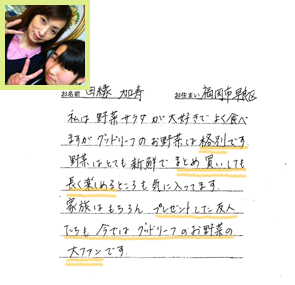 お名前 田縁 加寿 お住まい 福岡市早良区
私は野菜サラダが大好きでよく食べ
ますがグッドリーフのお野菜は格別です
野菜はとても新鮮でまとめ買いしても
長く楽しめるところも気に入ってます。
家族はもちろん プレゼントした友人
たちも今ではグッドリーフのお野菜の
大ファンです.